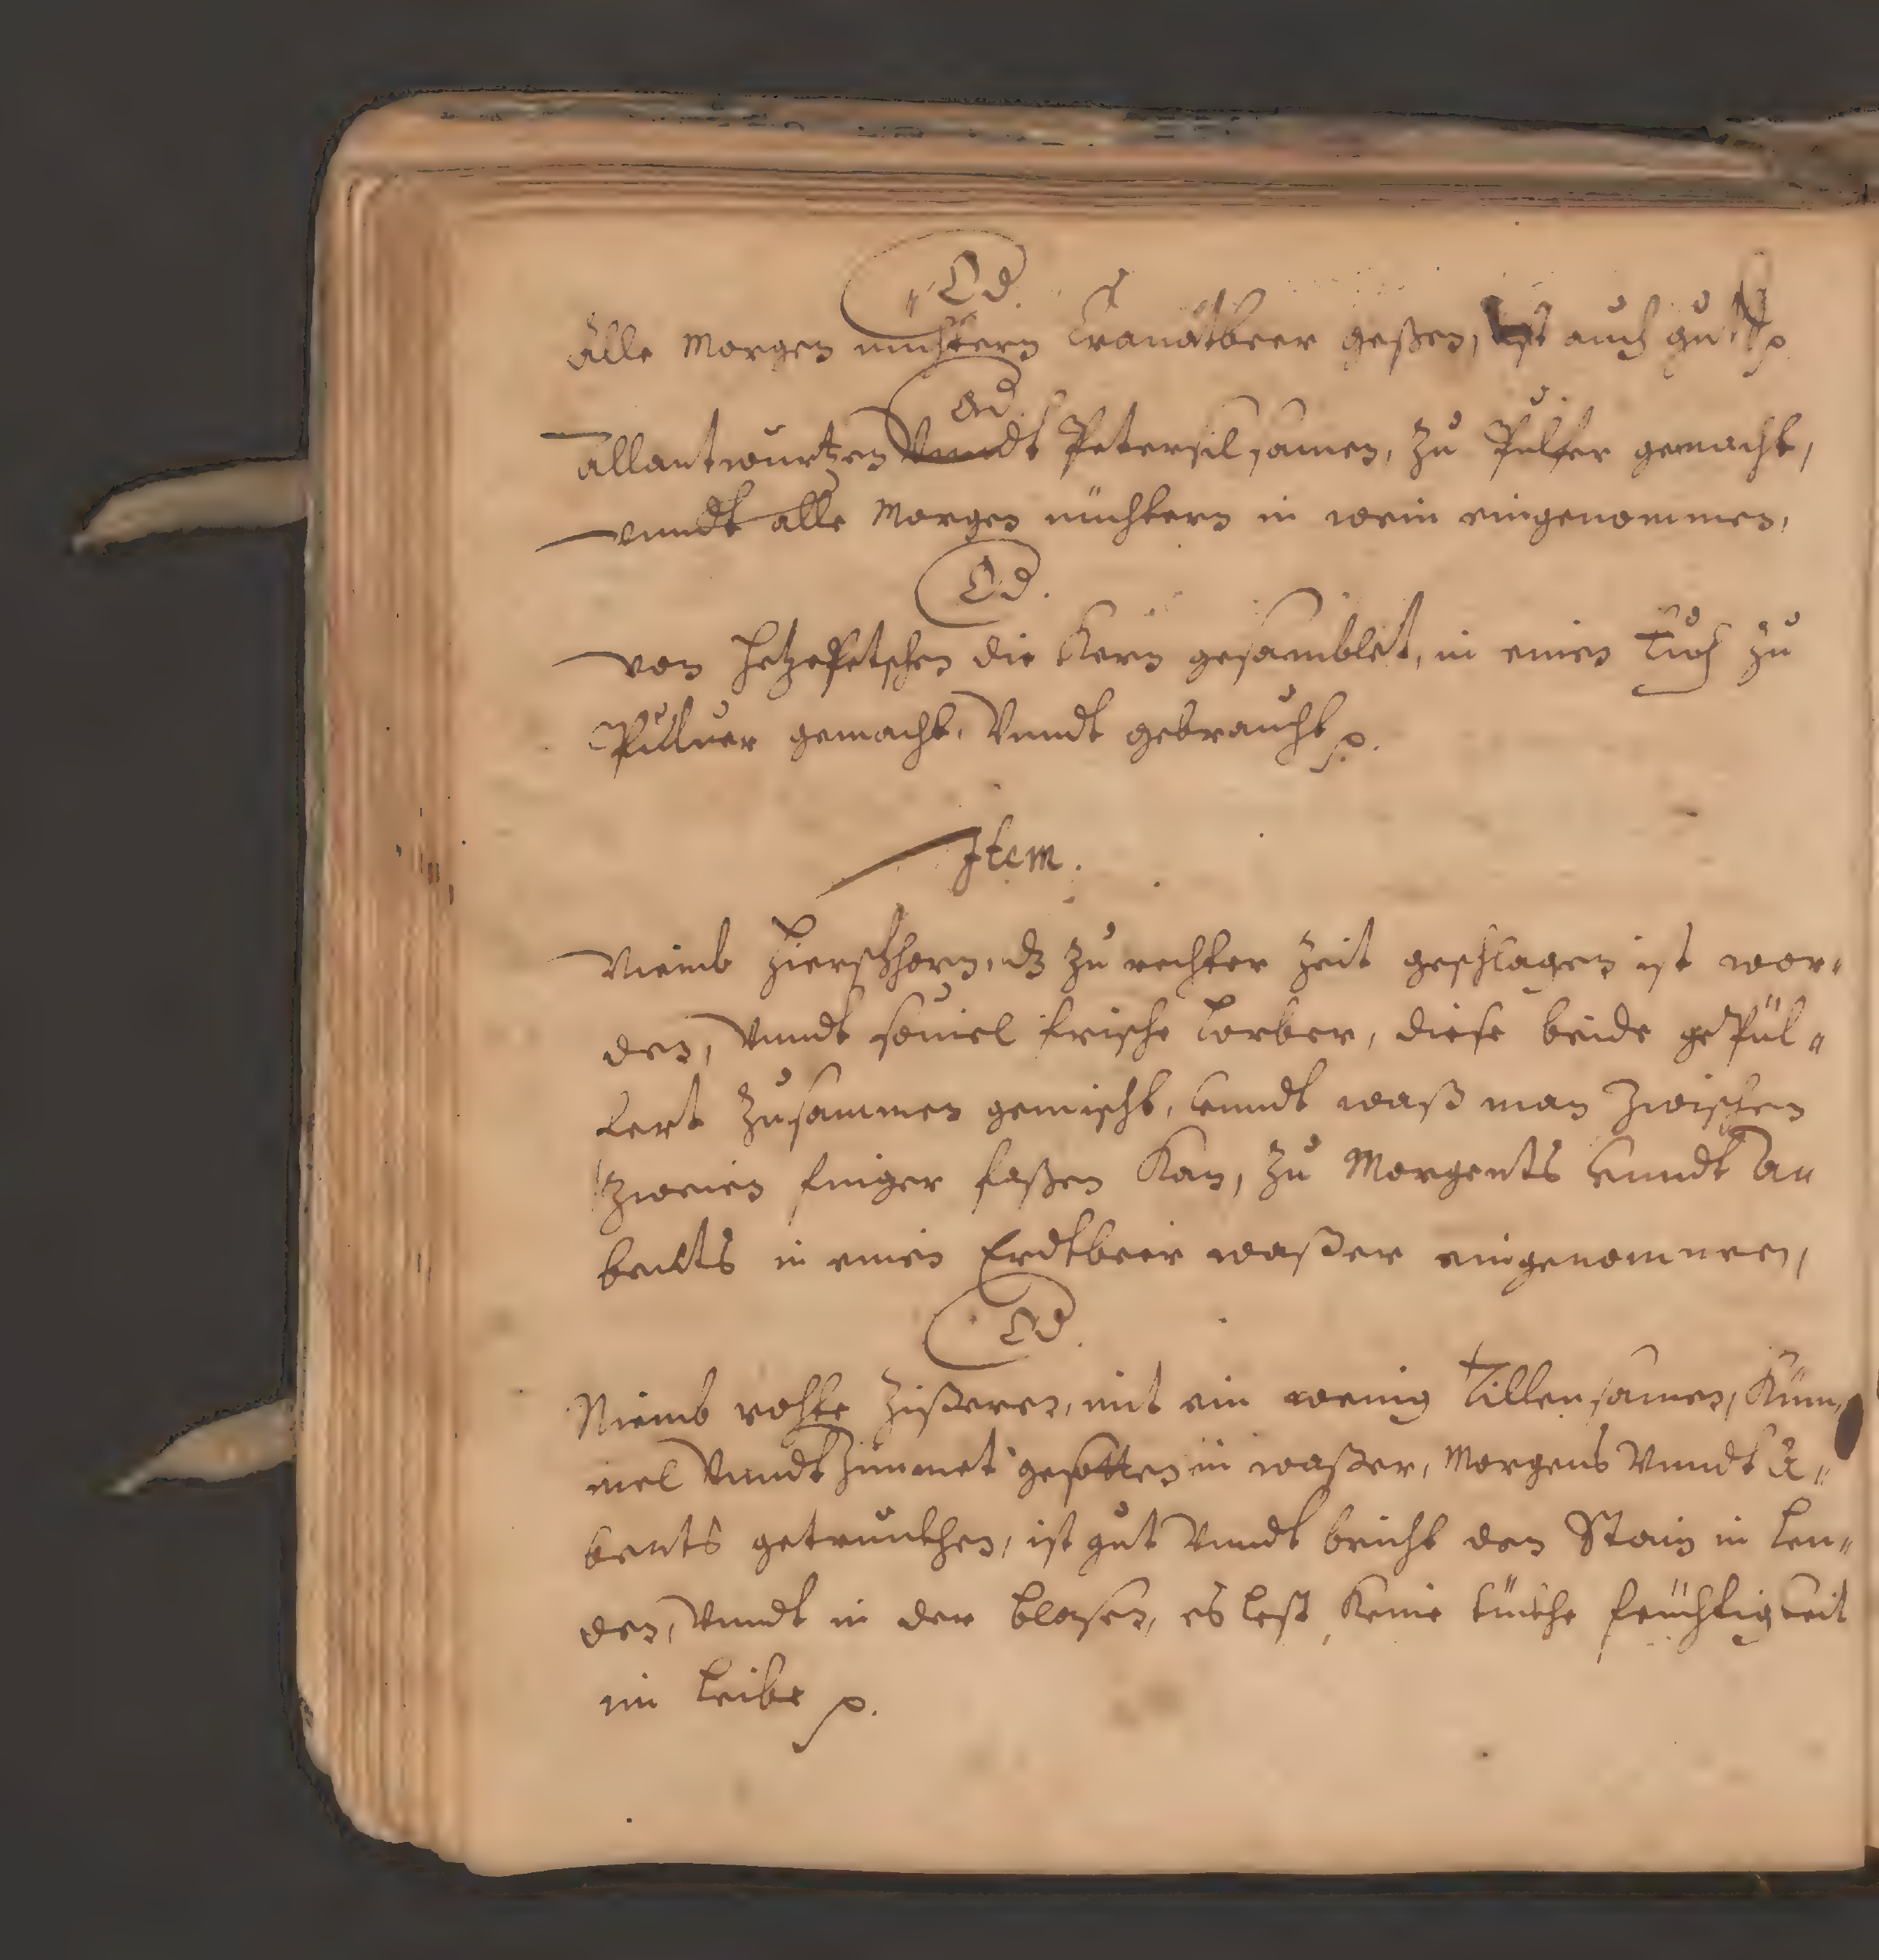 Od.
Alle Morgen nüchtern Cranatbeer geßen, ist auch gut p
Od.
Allantwurtzen Vnndt Petersilsamen, zu Pulfer gemacht,
vnndt alle Morgen nüchtern in wein eingenommen,
Od.
Von Hetzepetschen die Kern gesamblet, in einen Tuch zu
Puluer gemacht, Vnndt gebraucht p.
Item.
Niemb Hierschhorn, dz zu rechter Zeit geschlagen ist wor„
den, Vnndt souiel frische Lorber, diese beide gePül„
fert zusammen gemischt, Vnndt waß man Zwischen
Zweien finger faßen Kan, zu Morgents Vnndt A„
bendts in einen Erdtbeer waßer eingenommen,
Od.
Niemb rohte Zißeren, mit ein wenig Tillensamen, Küm„
mel Vnndt Zimmet gesotten in waßer, Morgens Vnndt A„
bents getrunkhen, ist gut Vnndt bricht den Stain in Len„
den, Vnndt in der Blasen, es lest Keine feüchtigkeit
im Leibe p.